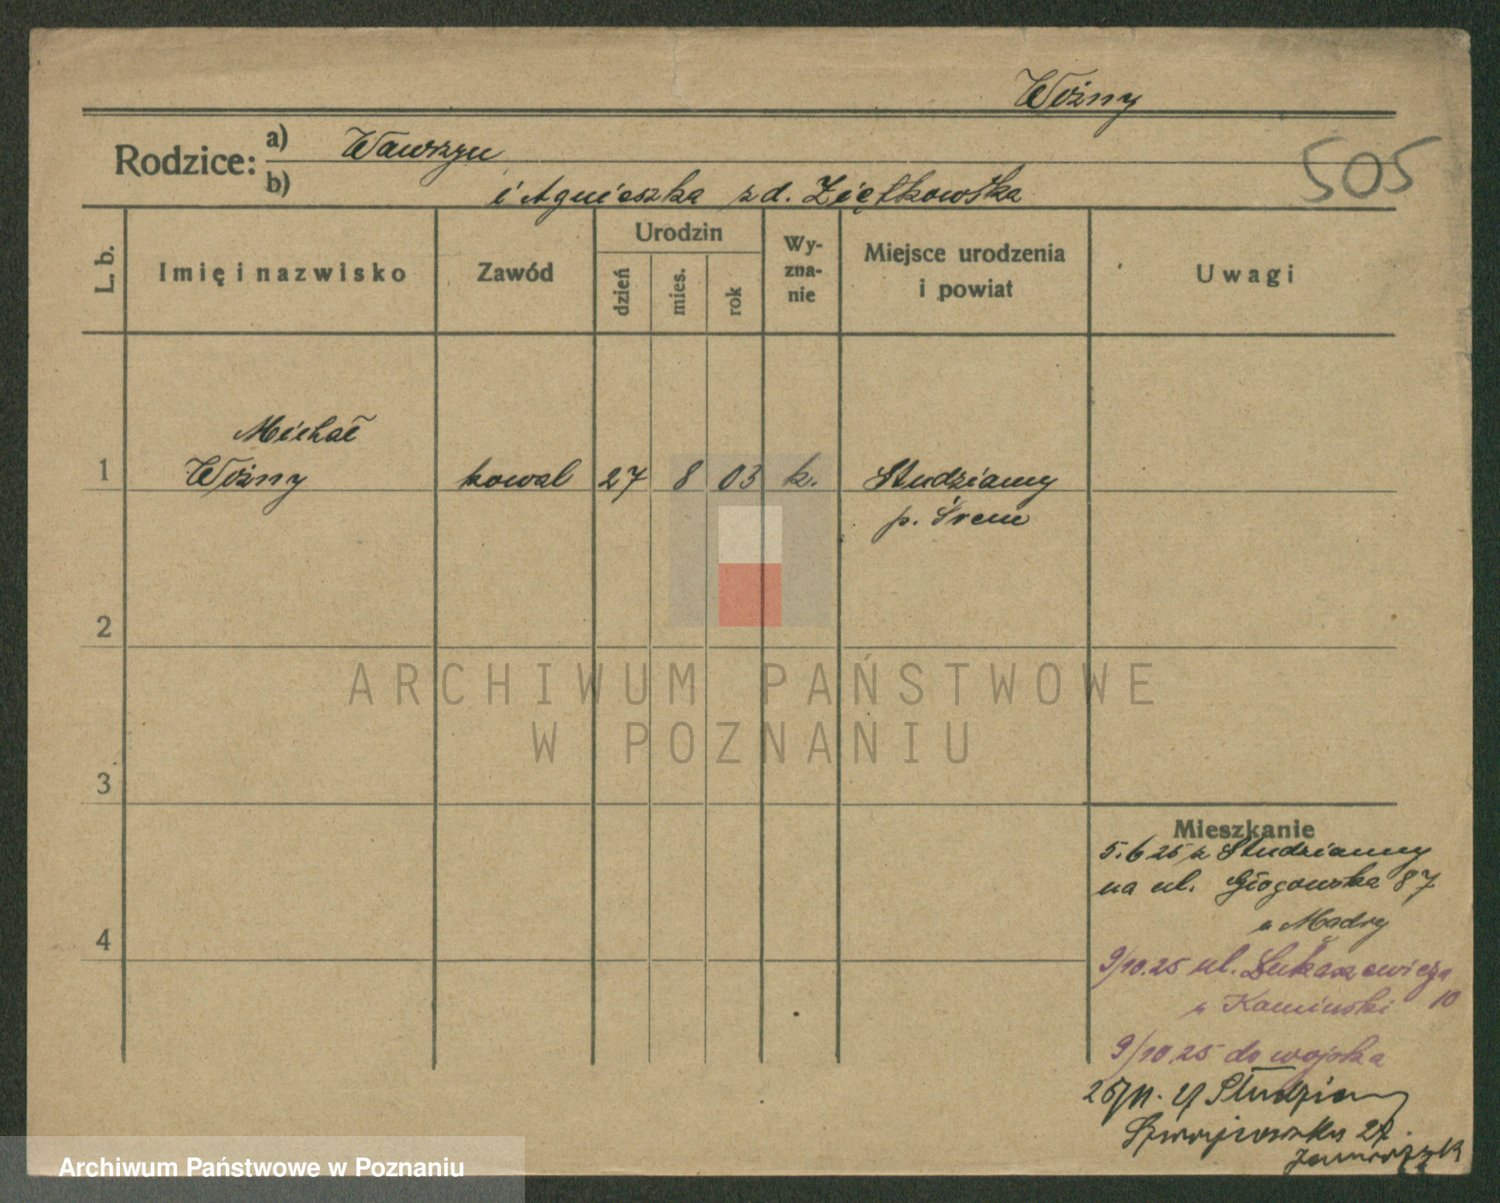 Woźny
505
Rodzice: a) Wawrzyn
b) i Agnieszka zd. Ziętkowska
L. b.
Imię i nazwisko
Zawód
Urodzin
dzień
mies.
rok
Wy-
zna-
nie
Miejsce urodzenia
i powiat
Uwagi
Michał
1 Woźny kowal 27 8 03 k. Studzianny
p. Śrem
2
3
4
Mieszkanie
5.6 25 z Studzianny
na ul. Głogowska 87
u Mądry
9/10.25 ul. Łukaszewicza
10
u Kaminski
9/10 25 do wojska
ARCHIWUM PAŃSTWOWE
W POZNANIU
Archiwum Państwowe w Poznaniu